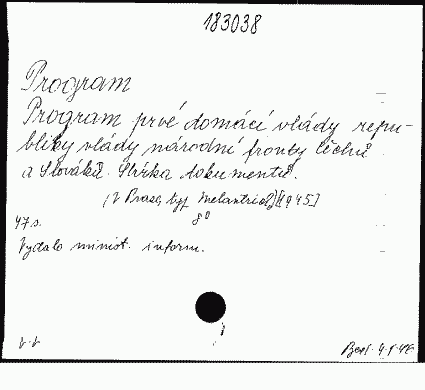 183038
Program
Program prvé domácí vlády repu-
bliky vlády národní fronty Čechů
a Slováků. Sbírka dokumentů.
(V Praze, typ. Melantrich) [1945]
47 s. 8°
Vydalo minist. inform.